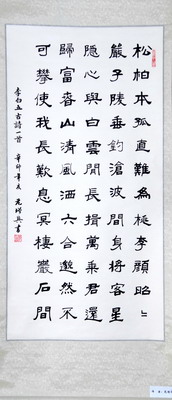 松柏本孤直難為桃李顏昭〻
嚴子陵垂釣滄波間身將客星
隱心與白雲閒長揖萬乘君還
歸富春山清風洒六合邈然不
可攀使我長歎息冥棲巖石間
李白五古詩一首 辛卯年 書